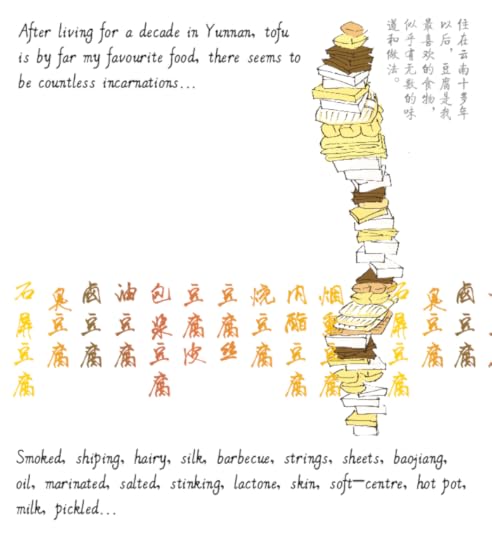 After living for a decade in Yunnan, tofu
is by far my favourite food, there seems to
be countless incarnations...
住在云南十多年
以后,豆腐是我
最喜欢的食物,
似乎有无数的味
道和做法。
石屏豆腐
臭豆腐
卤豆腐
油豆腐
包浆豆腐
豆腐皮
豆腐丝
烧豆腐
内酯豆腐
烟熏豆腐
石屏豆腐
臭豆腐
Smoked, shiping, hairy, silk, barbecue, strings, sheets, baojiang,
oil, marinated, salted, stinking, lactone, skin, soft-centre, hot pot,
milk, pickled...